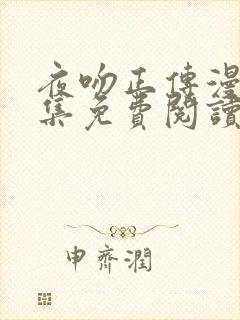 夜吻正傳漫
集免費閱讀
申齊潤